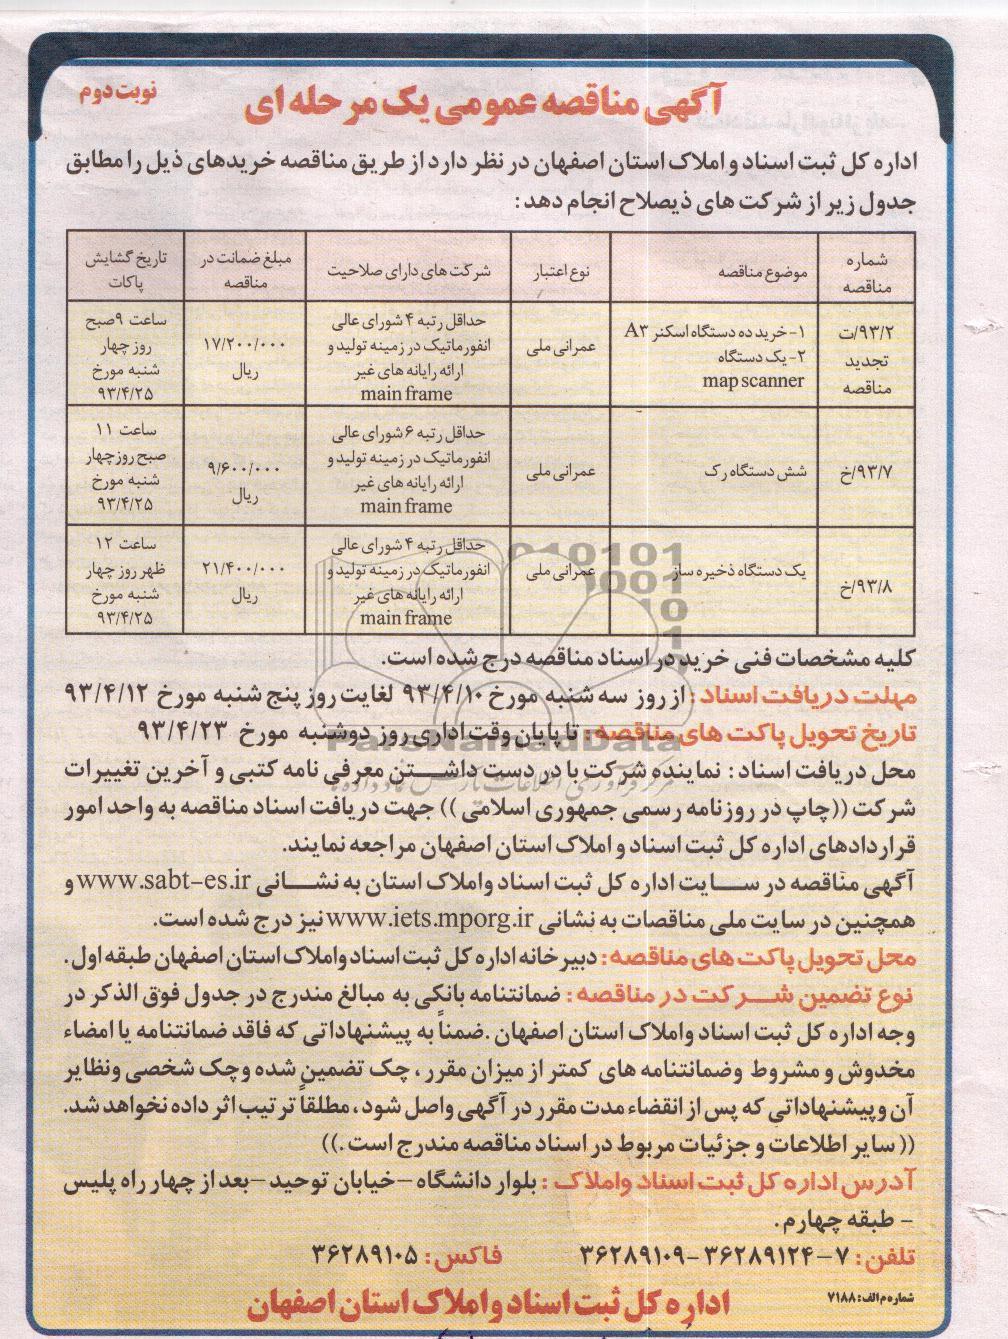 آگهی مناقصه عمومی یک مرحله ای
نوبت دوم
اداره کل ثبت اسناد و املاک استان اصفهان در نظر دارد از طریق مناقصه خریدهای ذیل را مطابق
جدول زیر از شرکت های ذیصلاح انجام دهد:
شماره مناقصه
موضوع مناقصه
نوع اعتبار
شرکت های دارای صلاحیت
مبلغ ضمانت در مناقصه
تاریخ گشایش پاکات
۹۳/۲/ت
تجدید
مناقصه
۱- خرید ده دستگاه اسکنر A۳
۲- یک دستگاه
map scanner
عمرانی ملی
حداقل رتبه ۴ شورای عالی
انفورماتیک در زمینه تولید و
ارائه رایانه های غیر
main frame
۱۷/۲۰۰/۰۰۰
ریال
ساعت ۹ صبح
روز چهار
شنبه مورخ
۹۳/۴/۲۵
۹۳/۷/خ
شش دستگاه رک
عمرانی ملی
حداقل رتبه ۶ شورای عالی
انفورماتیک در زمینه تولید و
ارائه رایانه های غیر
main frame
۹/۶۰۰/۰۰۰
ریال
ساعت ۱۱
صبح روز چهار
شنبه مورخ
۹۳/۴/۲۵
۹۳/۸/خ
یک دستگاه ذخیره ساز
عمرانی ملی
حداقل رتبه ۴ شورای عالی
انفورماتیک در زمینه تولید و
ارائه رایانه های غیر
main frame
۲۱/۴۰۰/۰۰۰
ریال
ساعت ۱۲
ظهر روز چهار
شنبه مورخ
۹۳/۴/۲۵
کلیه مشخصات فنی خرید در اسناد مناقصه درج شده است.
مهلت دریافت اسناد: از روز سه شنبه مورخ ۹۳/۴/۱۰ لغایت روز پنج شنبه مورخ ۹۳/۴/۱۲
تاریخ تحویل پاکت های مناقصه: تا پایان وقت اداری روز دوشنبه مورخ ۹۳/۴/۲۳
ParsNamadData
محل دریافت اسناد: نماینده شرکت با در دست داشتن معرفی نامه کتبی و آخرین تغییرات
شرکت ((چاپ در روزنامه رسمی جمهوری اسلامی)) جهت دریافت اسناد مناقصه به واحد امور
قراردادهای اداره کل ثبت اسناد و املاک استان اصفهان مراجعه نمایند.
آگهی مناقصه در سایت اداره کل ثبت اسناد واملاک استان به نشانی www.sabt-es.ir و
همچنین در سایت ملی مناقصات به نشانی www.iets.mporg.ir نیز درج شده است.
محل تحویل پاکت های مناقصه: دبیرخانه اداره کل ثبت اسناد واملاک استان اصفهان طبقه اول.
نوع تضمین شرکت در مناقصه: ضمانتنامه بانکی به مبالغ مندرج در جدول فوق الذکر در
وجه اداره کل ثبت اسناد واملاک استان اصفهان .ضمناً به پیشنهاداتی که فاقد ضمانتنامه یا امضاء
مخدوش و مشروط وضمانتنامه های کمتر از میزان مقرر، چک تضمین شده وچک شخصی ونظایر
آن وپیشنهاداتی که پس از انقضاء مدت مقرر در آگهی واصل شود، مطلقاً ترتیب اثر داده نخواهد شد.
((سایر اطلاعات و جزئیات مربوط در اسناد مناقصه مندرج است.))
آدرس اداره کل ثبت اسناد واملاک: بلوار دانشگاه –خیابان توحید –بعد از چهار راه پلیس
– طبقه چهارم.
تلفن: ۷–۳۶۲۸۹۱۲۴ –۳۶۲۸۹۱۰۹ فاکس: ۳۶۲۸۹۱۰۵
شماره م الف: ۷۱۸۸
اداره کل ثبت اسناد و املاک استان اصفهان